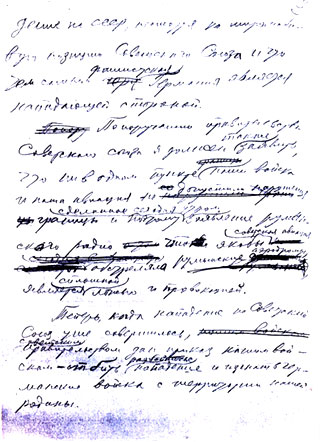 дение на СССР, несмотря на миролюби-
вую позицию Советского Союза и что
тем самым фашистская Германия является
нападающей стороной.
По поручению правительства
Советского союза я должен также заявить
что ни в одном пункте наши войска
и наша авиация не допустили нарушения
границы и поэтому сделанное сегодня утром заявление румын-
ского радио, что якобы советская авиация
обстреляла румынские аэродромы
является сплошной ложью и провокацией.
Теперь, когда нападение на Советский
Союз уже совершилось,
Советским правительством дан приказ нашим вой-
скам — отбить нападение и изгнать гер-
манские войска с территории нашей
родины.